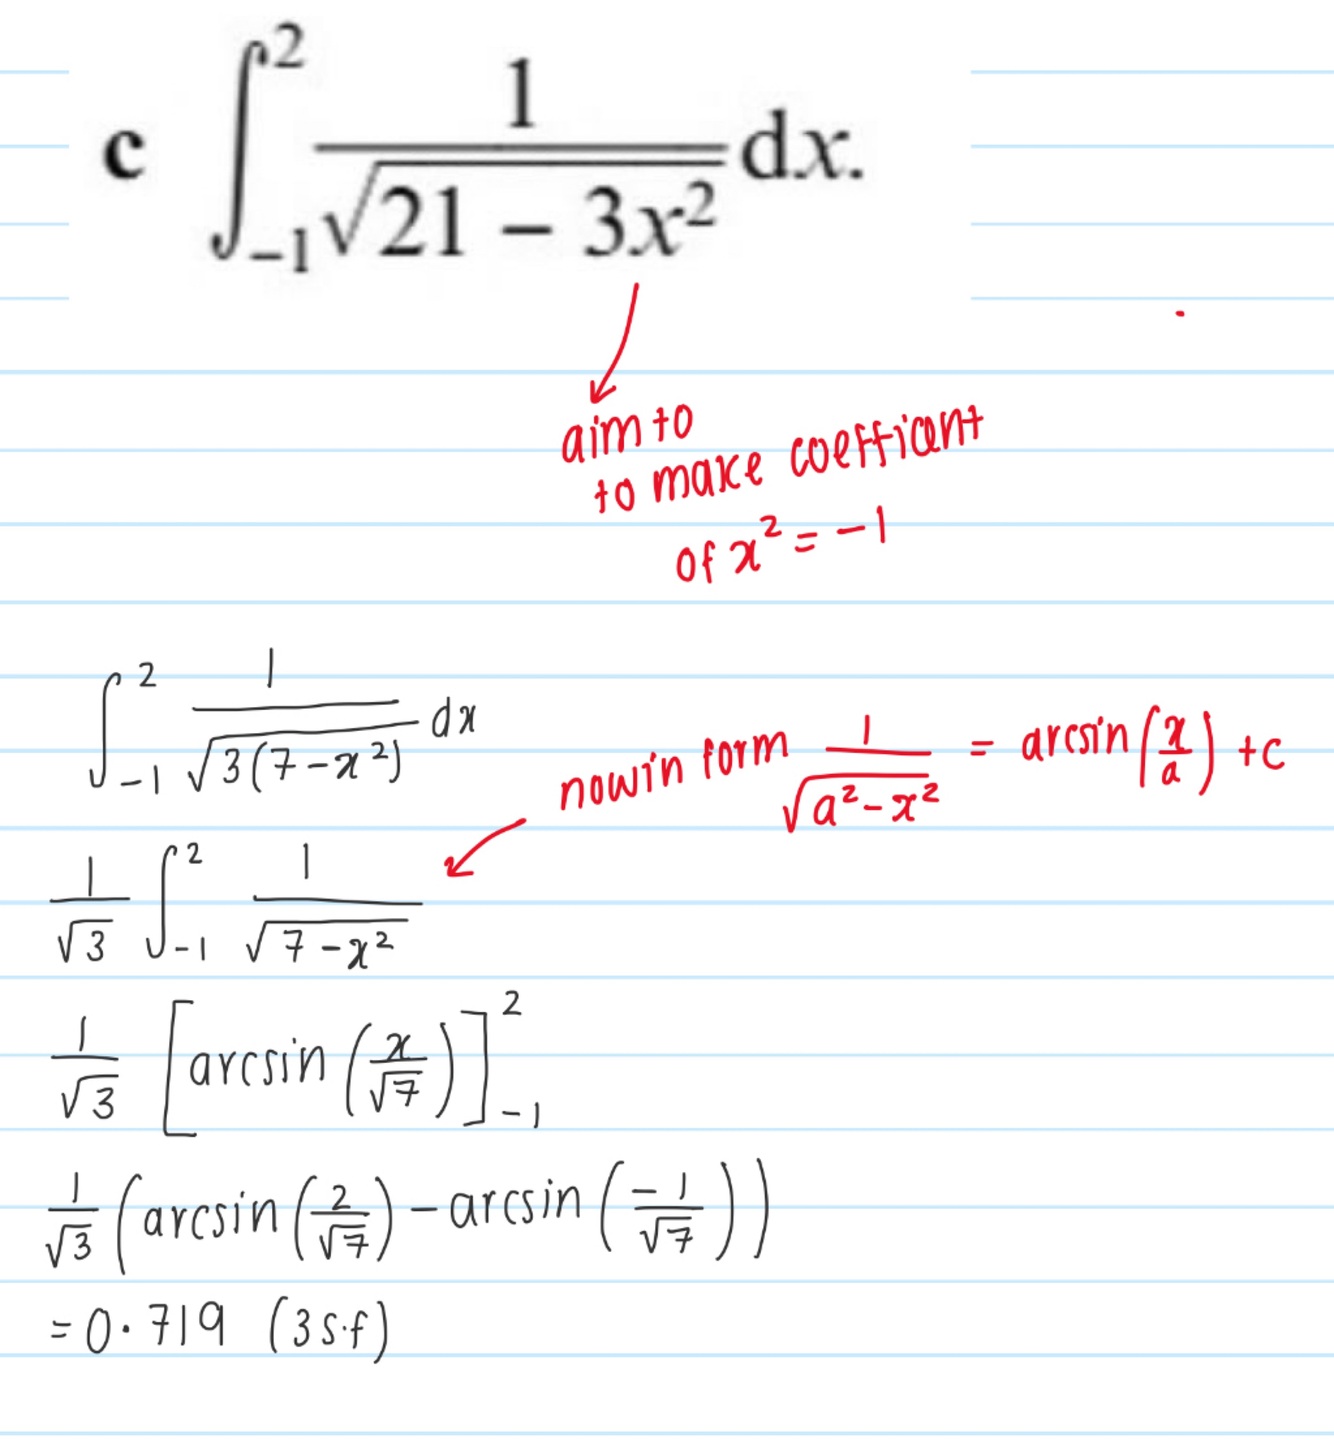 c ∫₋₁² 1/√(21 − 3x²) dx.
aim to
to make coefficient
of x² = −1
∫₋₁² 1/√(3(7−x²)) dx
now in form 1/√(a²−x²) = arcsin(x/a) + c
1/√3 ∫₋₁² 1/√(7−x²)
1/√3 [arcsin(x/√7)]₋₁²
1/√3 (arcsin(2/√7) − arcsin(−1/√7))
= 0.719 (3 s.f)